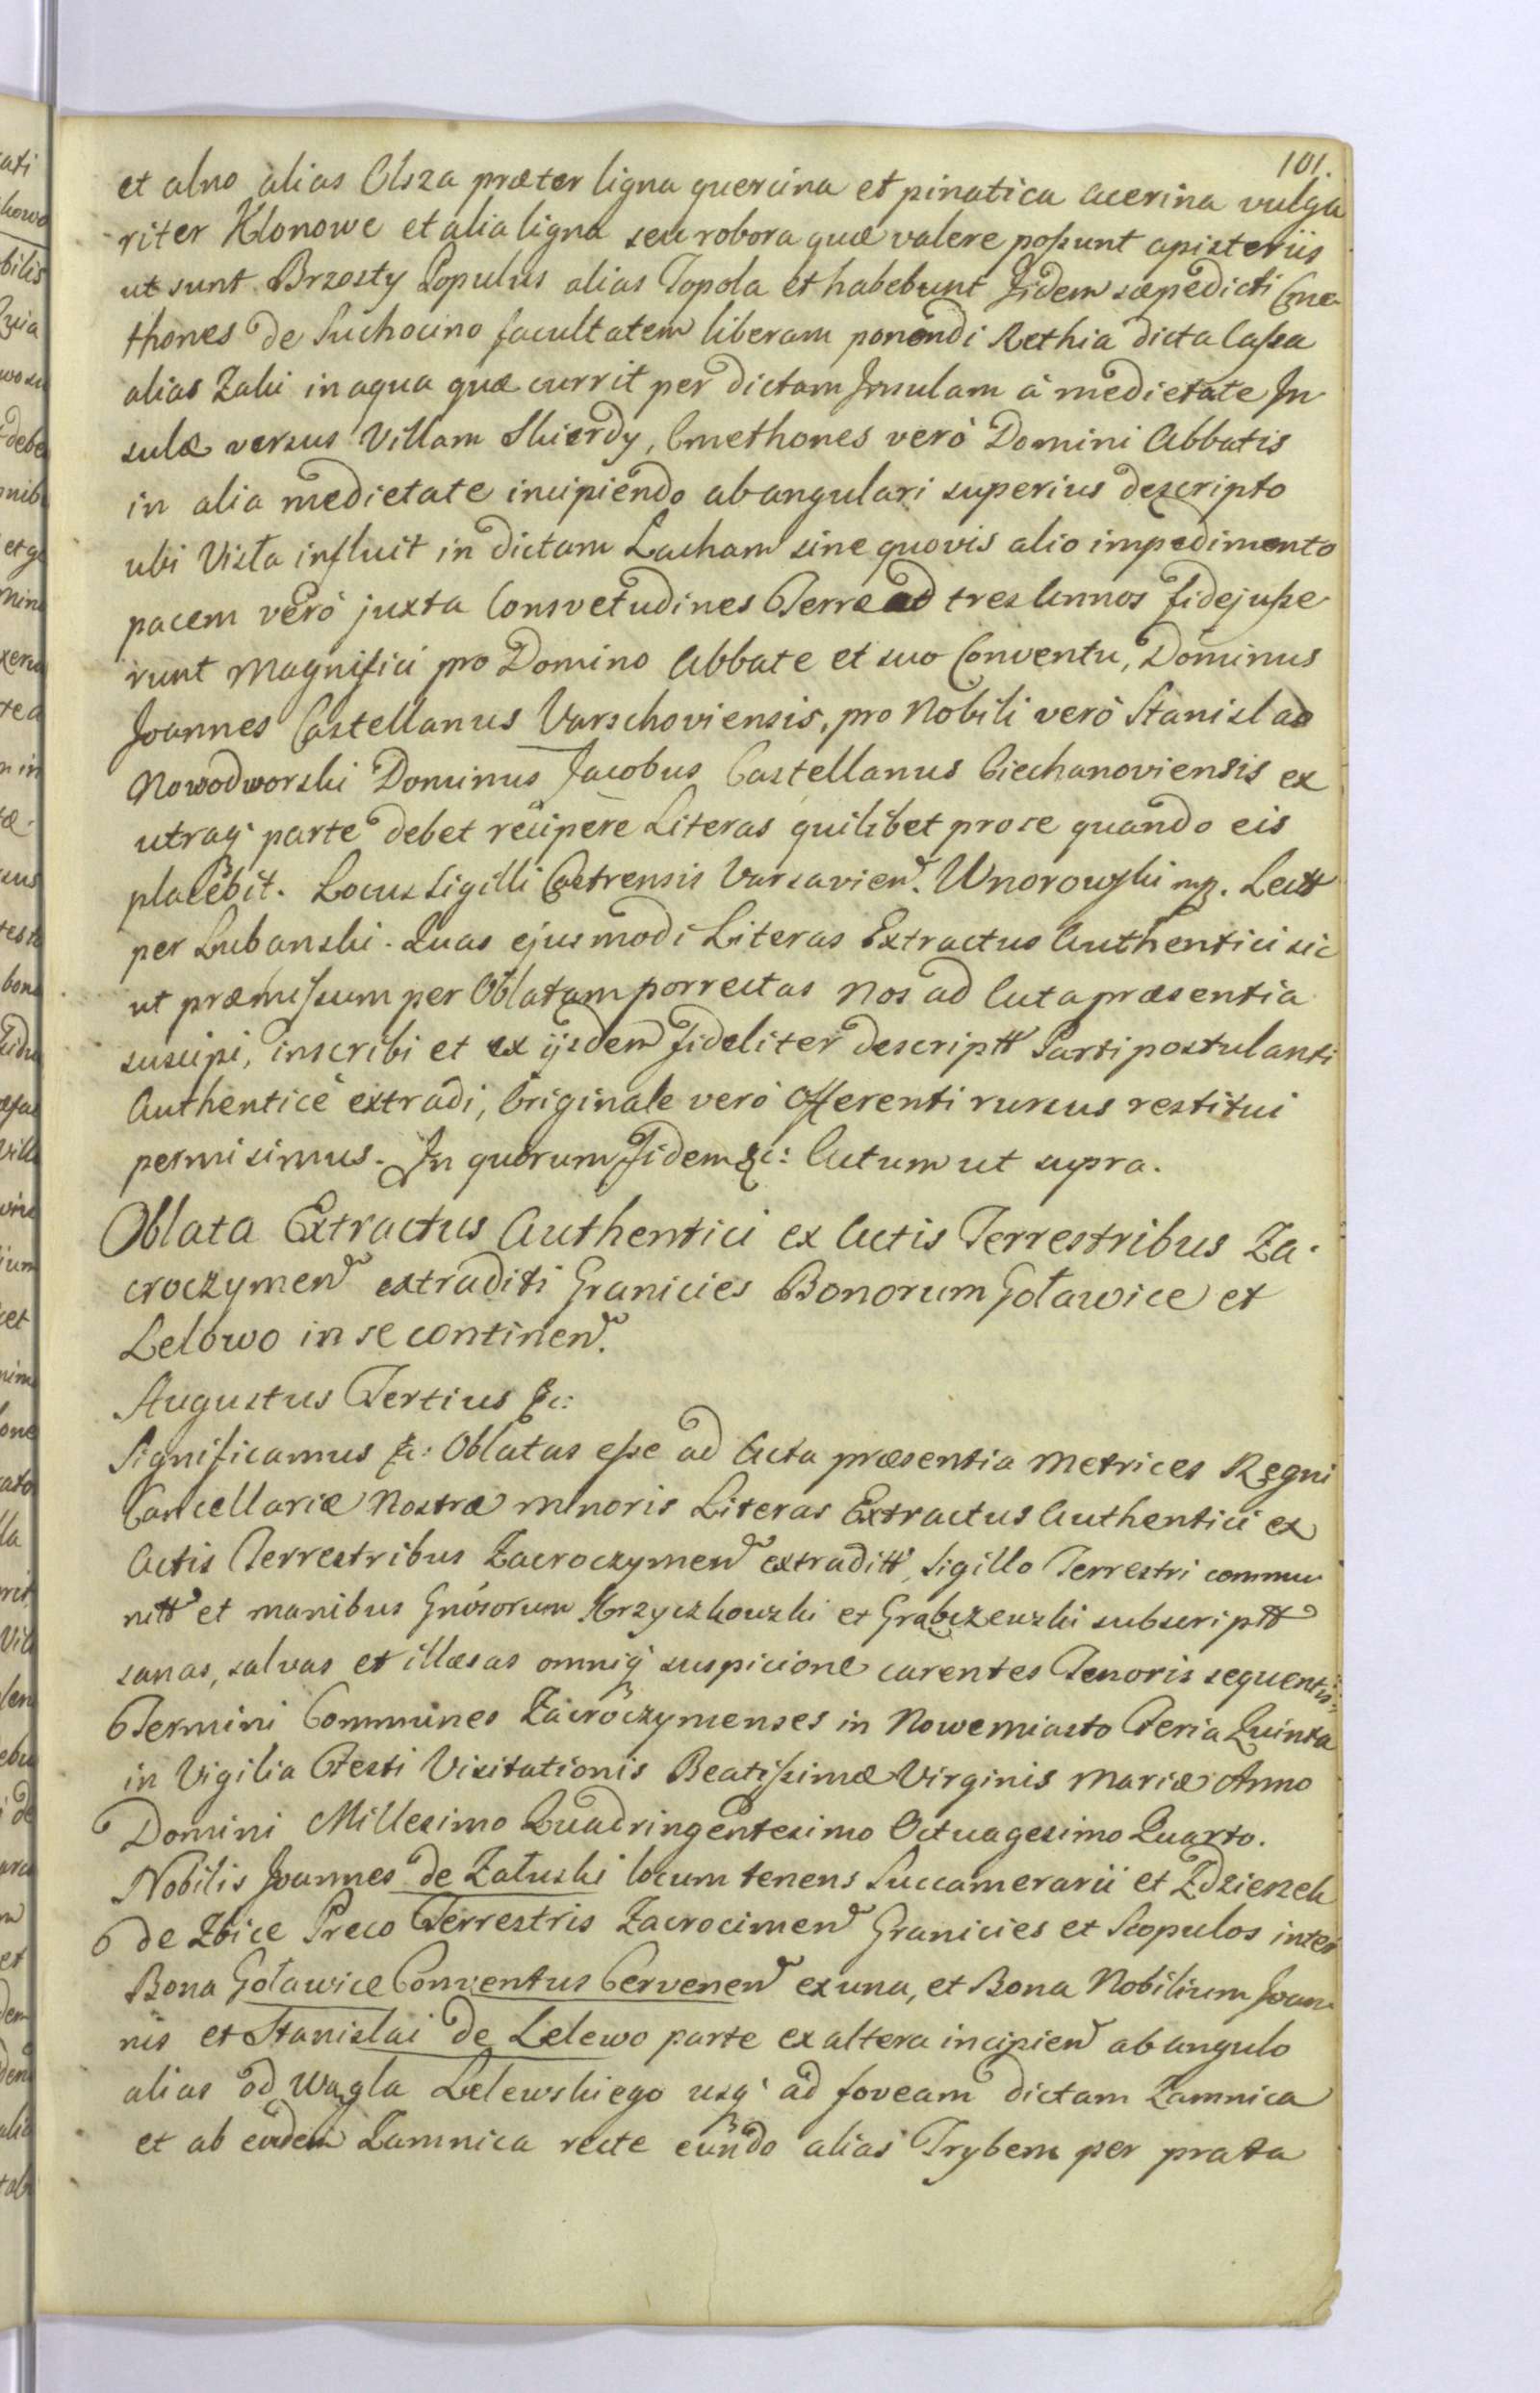 101.
et alno alias Olsza præter ligna quercina et pinatica acerina vulga
riter Klonowe et alia ligna seu robora quæ valere possunt apisteriis
ut sunt Brzosty Populus alias Topola et habebunt Iidem sæpedicti Cme-
thones de Suchocino facultatem liberam ponendi Rethia dicta Cassa
alias Zaki in aqua quæ currit per dictam Insulam à medietate In
sulæ versus Villam Skierdy, Cmethones verò Domini Abbatis
in alia medietate incipiendo ab angulari superius descripto
ubi Visła influit in dictam Lacham sine quovis alio impedimento
pacem verò juxta Consvetudines Terræ ad tres Annos fidejusse
runt Magnifici pro Domino Abbate et suo Conventu, Dominus
Joannes Castellanus Varschoviensis, pro Nobili verò Stanislao
Nowodworski Dominus Jacobus Castellanus Ciechanoviensis ex
utraq' parte debet recipere Literas quilibet pro se quando eis
placebit. Locus Sigilli Castrensis Varsavien. Wnorowski mp. Lectt
per Lubanski. Quas ejusmodi Literas Extractus Authentici sic
ut præmissum per Oblatam porrectas Nos ad Acta præsentia
suscipi, inscribi et ex ijsdem fideliter descriptt Parti postulanti
Authenticè extradi, Originale verò Offerenti rursus restitui
permisimus. In quorum Fidem &c: Actum ut supra.
Oblata Extractus Authentici ex Actis Terrestribus Za-
croczymen extraditi Granicies Bonorum Goławice et
Lelowo in se continen.
Augustus Tertius &c:
Significamus &c: Oblatas esse ad Acta præsentia Metrices Regni
Cancellariæ Nostræ Minoris Literas Extractus Authentici ex
Actis Terrestribus Zacroczymen extraditt, Sigillo Terrestri commu
nitt et manibus Gnosorum Krzyczkowski et Grabczewski subscriptt
sanas, salvas et illæsas omniq' suspicione carentes Tenoris sequentis:
Termini Communes Zacroczymenses in Nowemiasto Feria Quinta
in Vigilia Festi Visitationis Beatissimæ Virginis Mariæ Anno
Domini Millesimo Quadringentesimo Octuagesimo Quarto.
Nobilis Joannes de Załuski locum tenens Succamerarii et Zdzienek
de Zbice Preco Terrestris Zacrocimen Granicies et Scopulos inter
Bona Goławice Conventus Cervenen ex una, et Bona Nobilium Joan
nis et Stanislai de Lelewo parte ex altera incipien ab angulo
alias od Wągla Lelewskiego usq' ad foveam dictam Zamnica
et ab eadem Zamnica recte eundo alias Trybem per prata